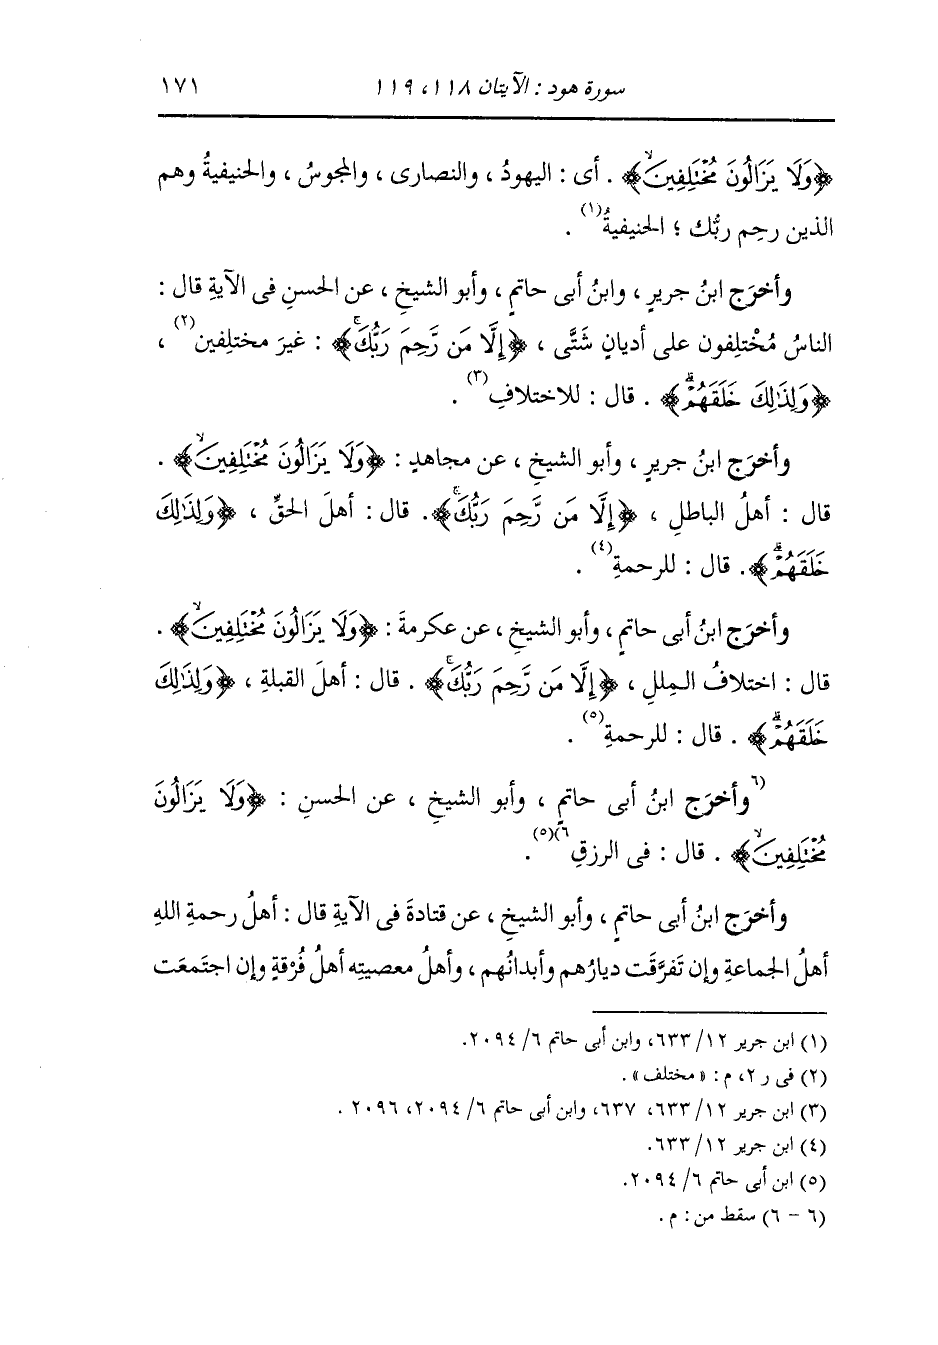 سورة هود : الآيتان ١١٨، ١١٩
١٧١
﴿وَلَا يَزَالُونَ مُخْتَلِفِينَ﴾ . أى : اليهودُ ، والنصارى ، والمجوسُ ، والحنيفيةُ وهم
الذين رحِم ربُّك ؛ الحنيفيةُ(١) .
وأخرَج ابنُ جريرٍ ، وابنُ أبى حاتمٍ ، وأبو الشيخِ ، عن الحسنِ فى الآيةِ قال :
الناسُ مُخْتلِفون على أديانٍ شتَّى ، ﴿إِلَّا مَن رَّحِمَ رَبُّكَ﴾ : غيرَ مختلِفين(٢) ،
﴿وَلِذَٰلِكَ خَلَقَهُمْ﴾ . قال : للاختلافِ(٣) .
وأخرَج ابنُ جريرٍ ، وأبو الشيخِ ، عن مجاهدٍ : ﴿وَلَا يَزَالُونَ مُخْتَلِفِينَ﴾ .
قال : أهلُ الباطلِ ، ﴿إِلَّا مَن رَّحِمَ رَبُّكَ﴾ . قال : أهلَ الحقِّ ، ﴿وَلِذَٰلِكَ
خَلَقَهُمْ﴾ . قال : للرحمةِ(٤) .
وأخرَج ابنُ أبى حاتمٍ ، وأبو الشيخِ ، عن عكرمةَ : ﴿وَلَا يَزَالُونَ مُخْتَلِفِينَ﴾ .
قال : اختلافُ المللِ ، ﴿إِلَّا مَن رَّحِمَ رَبُّكَ﴾ . قال : أهلَ القبلةِ ، ﴿وَلِذَٰلِكَ
خَلَقَهُمْ﴾ . قال : للرحمةِ(٥) .
(٦وأخرَج ابنُ أبى حاتمٍ ، وأبو الشيخِ ، عن الحسنِ : ﴿وَلَا يَزَالُونَ
مُخْتَلِفِينَ﴾ . قال : فى الرزقِ٦)(٥) .
وأخرَج ابنُ أبى حاتمٍ ، وأبو الشيخِ ، عن قتادةَ فى الآيةِ قال : أهلُ رحمةِ اللهِ
أهلُ الجماعةِ وإن تَفرَّقَت ديارُهم وأبدانُهم ، وأهلُ معصيتِه أهلُ فُرْقةٍ وإن اجتَمعَت
(١) ابن جرير ١٢/ ٦٣٣، وابن أبى حاتم ٦/ ٢٠٩٤.
(٢) فى ر ٢، م : « مختلف » .
(٣) ابن جرير ١٢/ ٦٣٣، ٦٣٧، وابن أبى حاتم ٦/ ٢٠٩٤، ٢٠٩٦ .
(٤) ابن جرير ١٢/ ٦٣٣.
(٥) ابن أبى حاتم ٦/ ٢٠٩٤.
(٦ - ٦) سقط من : م .